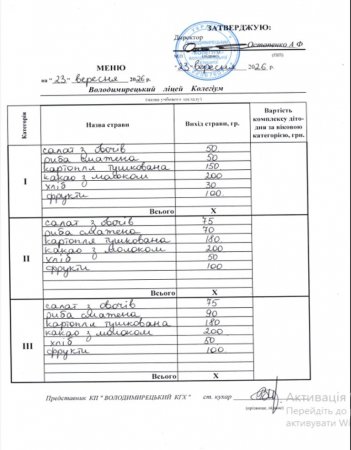 ЗАТВЕРДЖУЮ:
Директор
Остапенко А Ф
(ПІП)
МЕНЮ
"23" вересня 2026 р.
на "23" вересня 2026 р.
Володимирецький ліцей Колегіум
(назва учбового закладу)
Категорія
Назва страви
Вихід страви, гр.
Вартість комплекту діто-дня за віковою категорією, грн.
І
салат з овочів 50
риба смажена 50
картопля тушкована 150
какао з молоком 200
хліб 30
фрукти 100
Всього Х
ІІ
салат з овочів 75
риба смажена 70
картопля тушкована 180
какао з молоком 200
хліб 50
фрукти 100
Всього Х
ІІІ
салат з овочів 75
риба смажена 90
картопля тушкована 180
какао з молоком 200
хліб 50
фрукти 100
Всього Х
Представник КП " ВОЛОДИМИРЕЦЬКИЙ КГХ " ст. кухар
Активація
Перейдіть до
активувати Wi